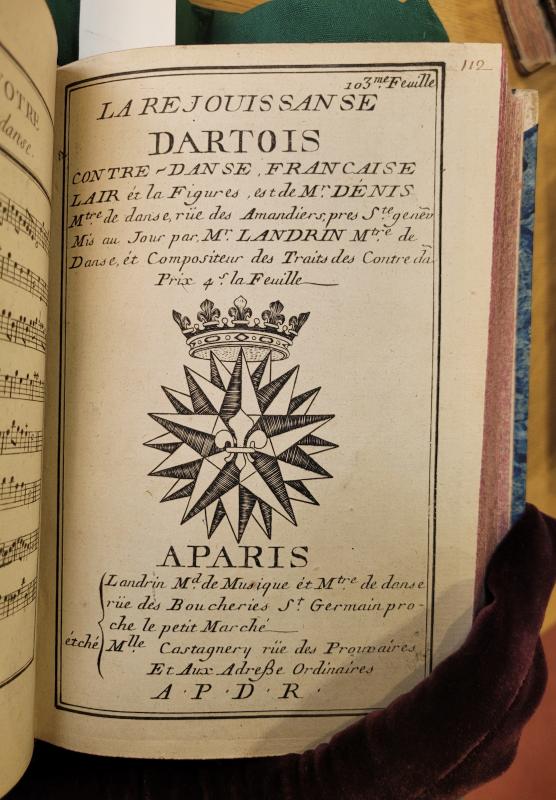 OTRE
danse.
112
103.me Feuille
LA REJOUISSANSE
DARTOIS
CONTRE-DANSE, FRANCAISE
LAIR ét la Figures, est de Mr. DÉNIS
Mtre de danse, rüe des Amandiers, pres Ste genev̄
Mis au Jour par, Mr. LANDRIN Mtre de
Danse, ét Compositeur des Traits des Contre dā
Prix 4 s. la Feuille
APARIS
Landrin Md de Musique ét Mtre de danse
rüe des Boucheries St Germain pro-
che le petit Marché
ét ché Mlle Castagnery rüe des Prouvaires
Et Aux Adreße Ordinaires
A. P. D. R.